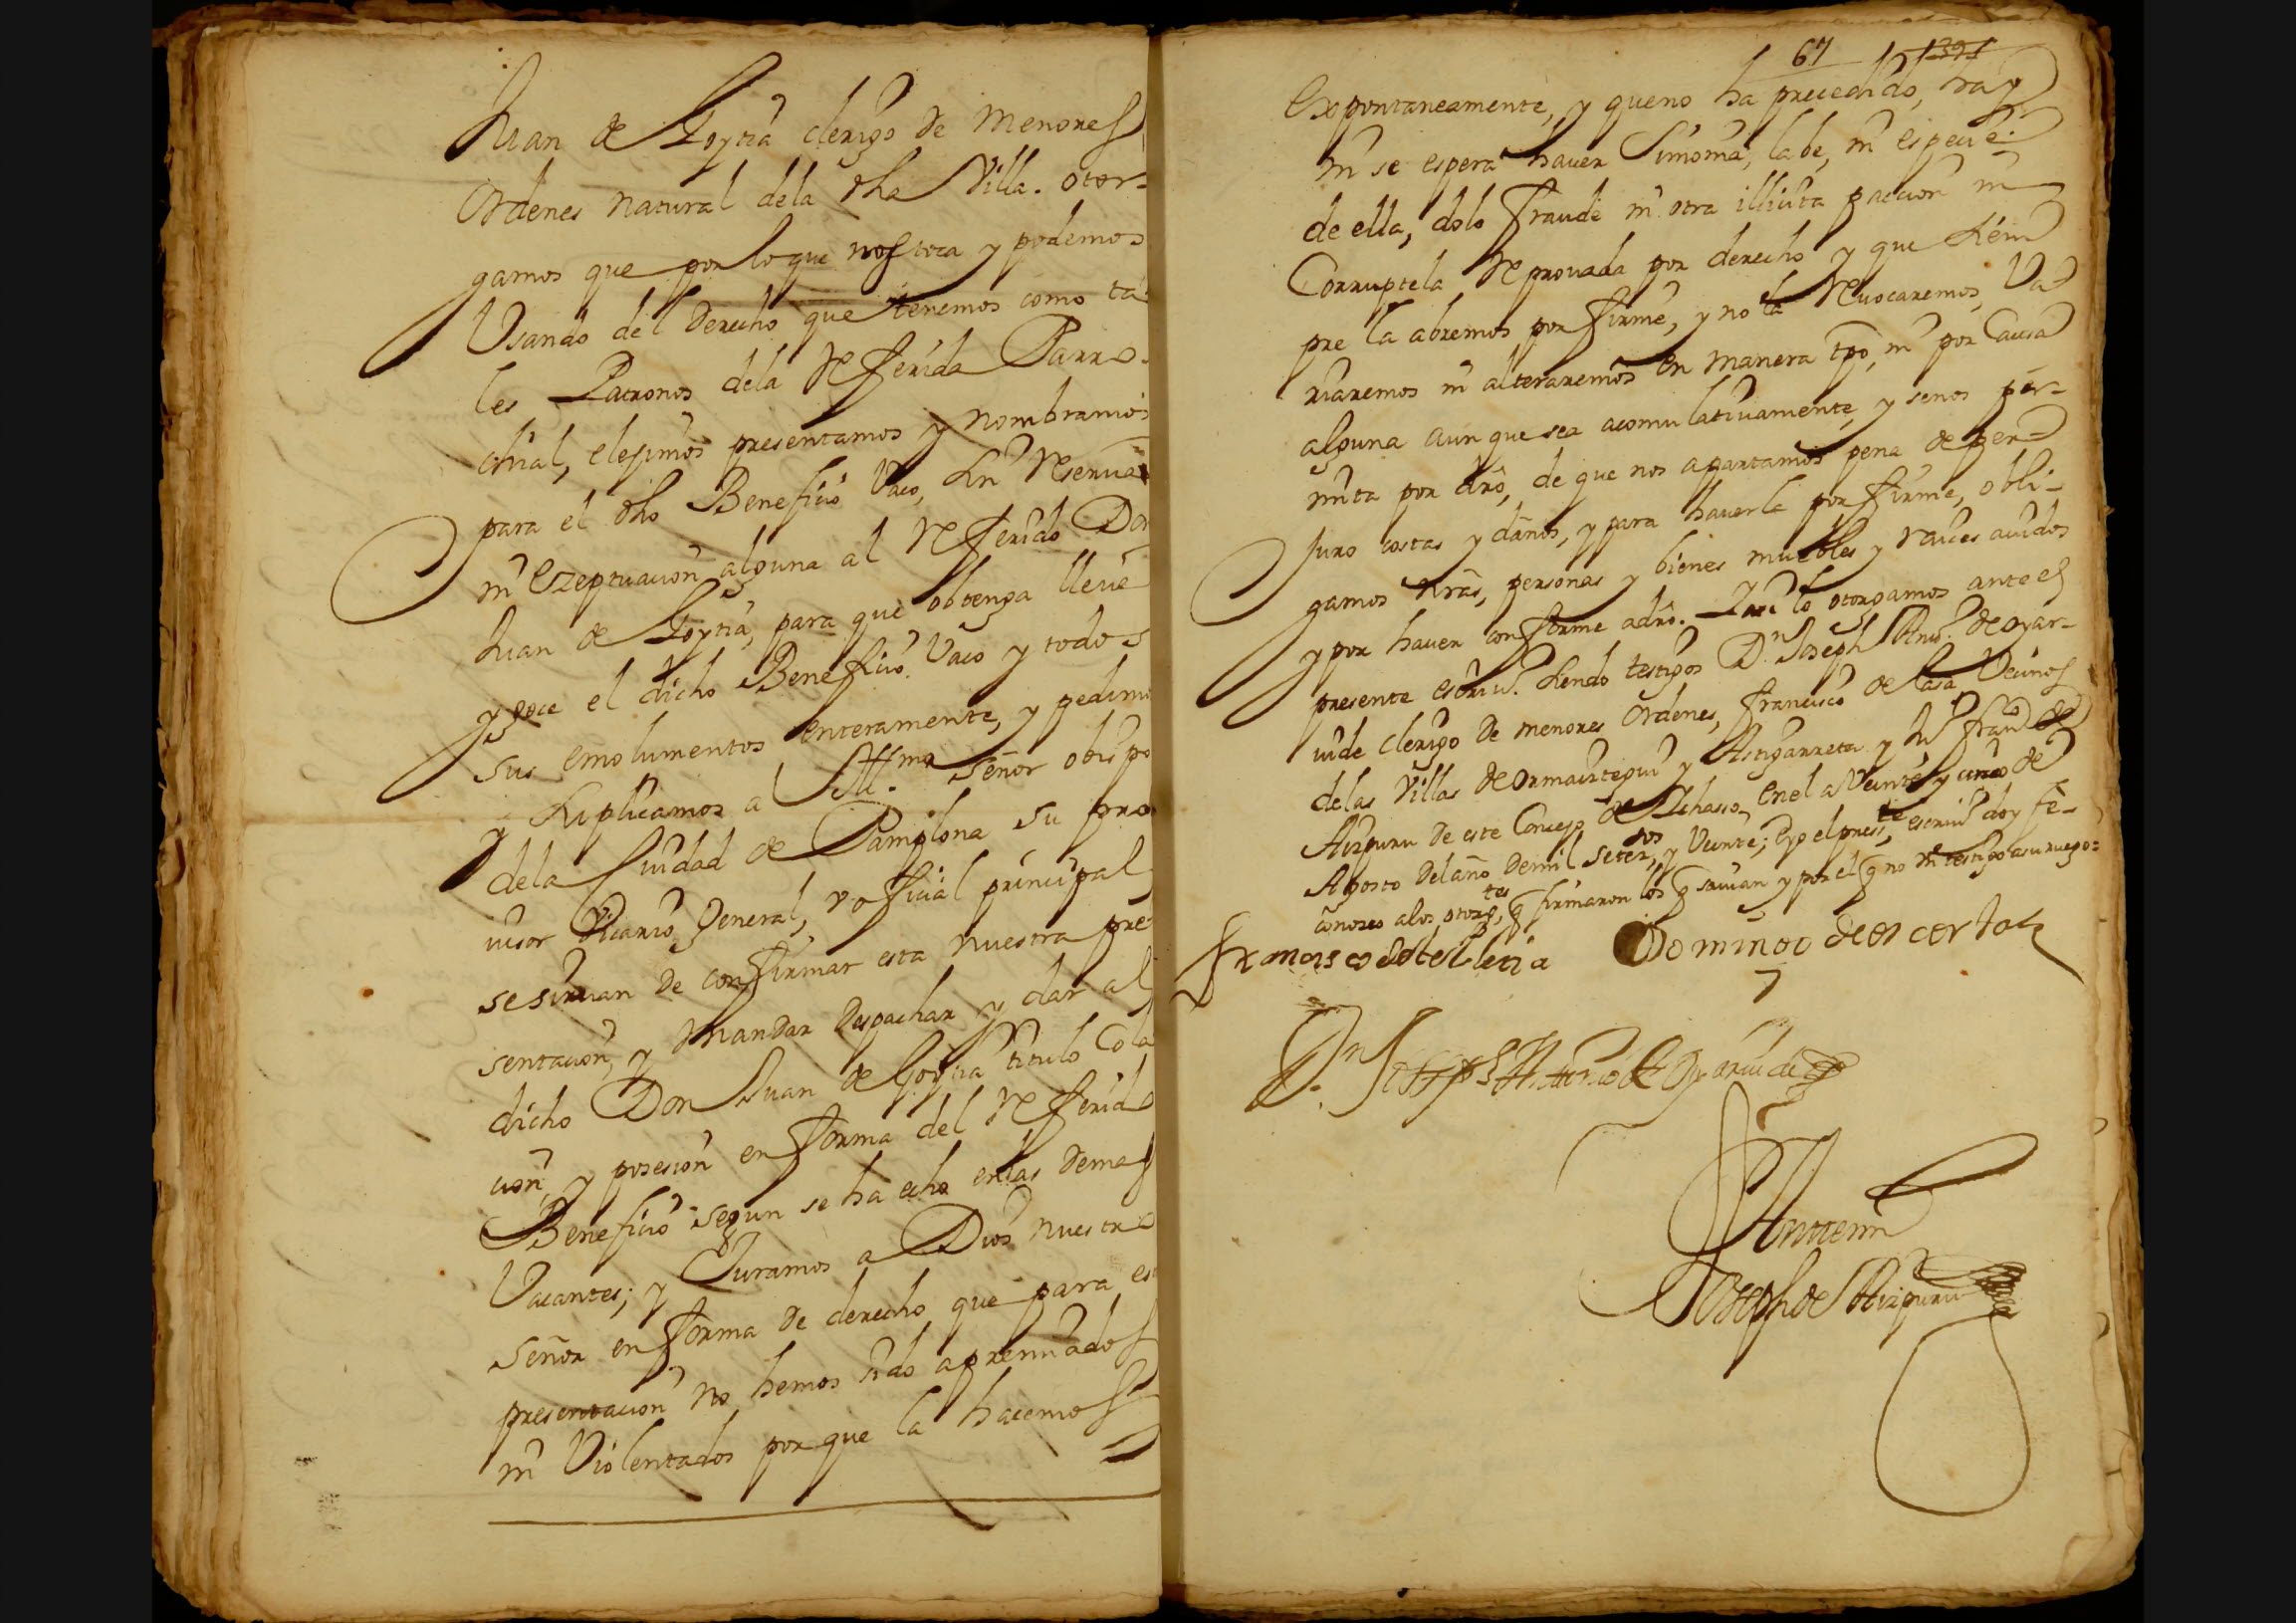 Juan de Goytia clerigo de menores
ordenes natural dela dha Villa. otor-
gamos que por lo que nos toca y podemos
Usando del derecho que tenemos como ta-
les Patronos dela Refferida Parro-
chial, elejimos presentamos y nombramos
para el dho Beneficio Vaco, sin Reserva
ni Ezeptuacion alguna al Refferido Don
Juan de Goytia, para que obtenga lleve
y goce el dicho Beneficio Vaco y todos
sus emolumentos enteramente, y pedimos
y suplicamos al Ill.mo señor obispo
dela Ciudad de Pamplona su pro
visor Vicario General, y oficial principal
se sirvan de confirmar esta nuestra pre-
sentacion, y mandar despachar y dar al
dicho Don Juan de Goytia titulo Cola
cion, y posesion en forma del Refferido
Beneficio segun se ha echo en las demas
Vacantes; y Juramos a Dios nuestro
señor en forma de derecho que para esta
presentacion no hemos sido apremiados
ni Violentados porque la hacemos
67 139
Expontaneamente, y que no ha precedido, hay
ni se espera haver Simonia, labe, ni especie
de ella, dolo fraude ni otra illicita paccion ni
Corruptela Reprovada por derecho y que siem
pre la abremos por firme, y no la Revocaremos, Va-
riaremos ni alteraremos en manera tpõ, ni por Causa
alguna aunque sea acomulativamente, y senos per-
mita por dro, de que nos apartamos pena de per-
juro costas y daños, y para haverla por firme, obli-
gamos nras, personas y bienes muebles y raices avidos
y por haver conforme adro. Y asi lo otorgamos ante el
presente escriv.o siendo testigos D.n Joseph Antt.o de oyar-
vide clerigo de menores ordenes, Francisco de lasa Vecinos
delas Villas de Ormaiztegui y Astigarreta y Ju.o fran.co de
Aizpuru de este Concejo de Ichasso, en el a Veinte y cinco de
Agosto del año de mil setez.os y Veinte; E yo el press.te escriv.o doy fe-
conozco alos otorg.tes, q firmaron los q savian y por el q no Vn testigo asu ruego=
Francisco de telleria Domingo de os cortaz
D.n Joseph Antonio de Oyarvide
Antte mi
Joseph de Aizpuru